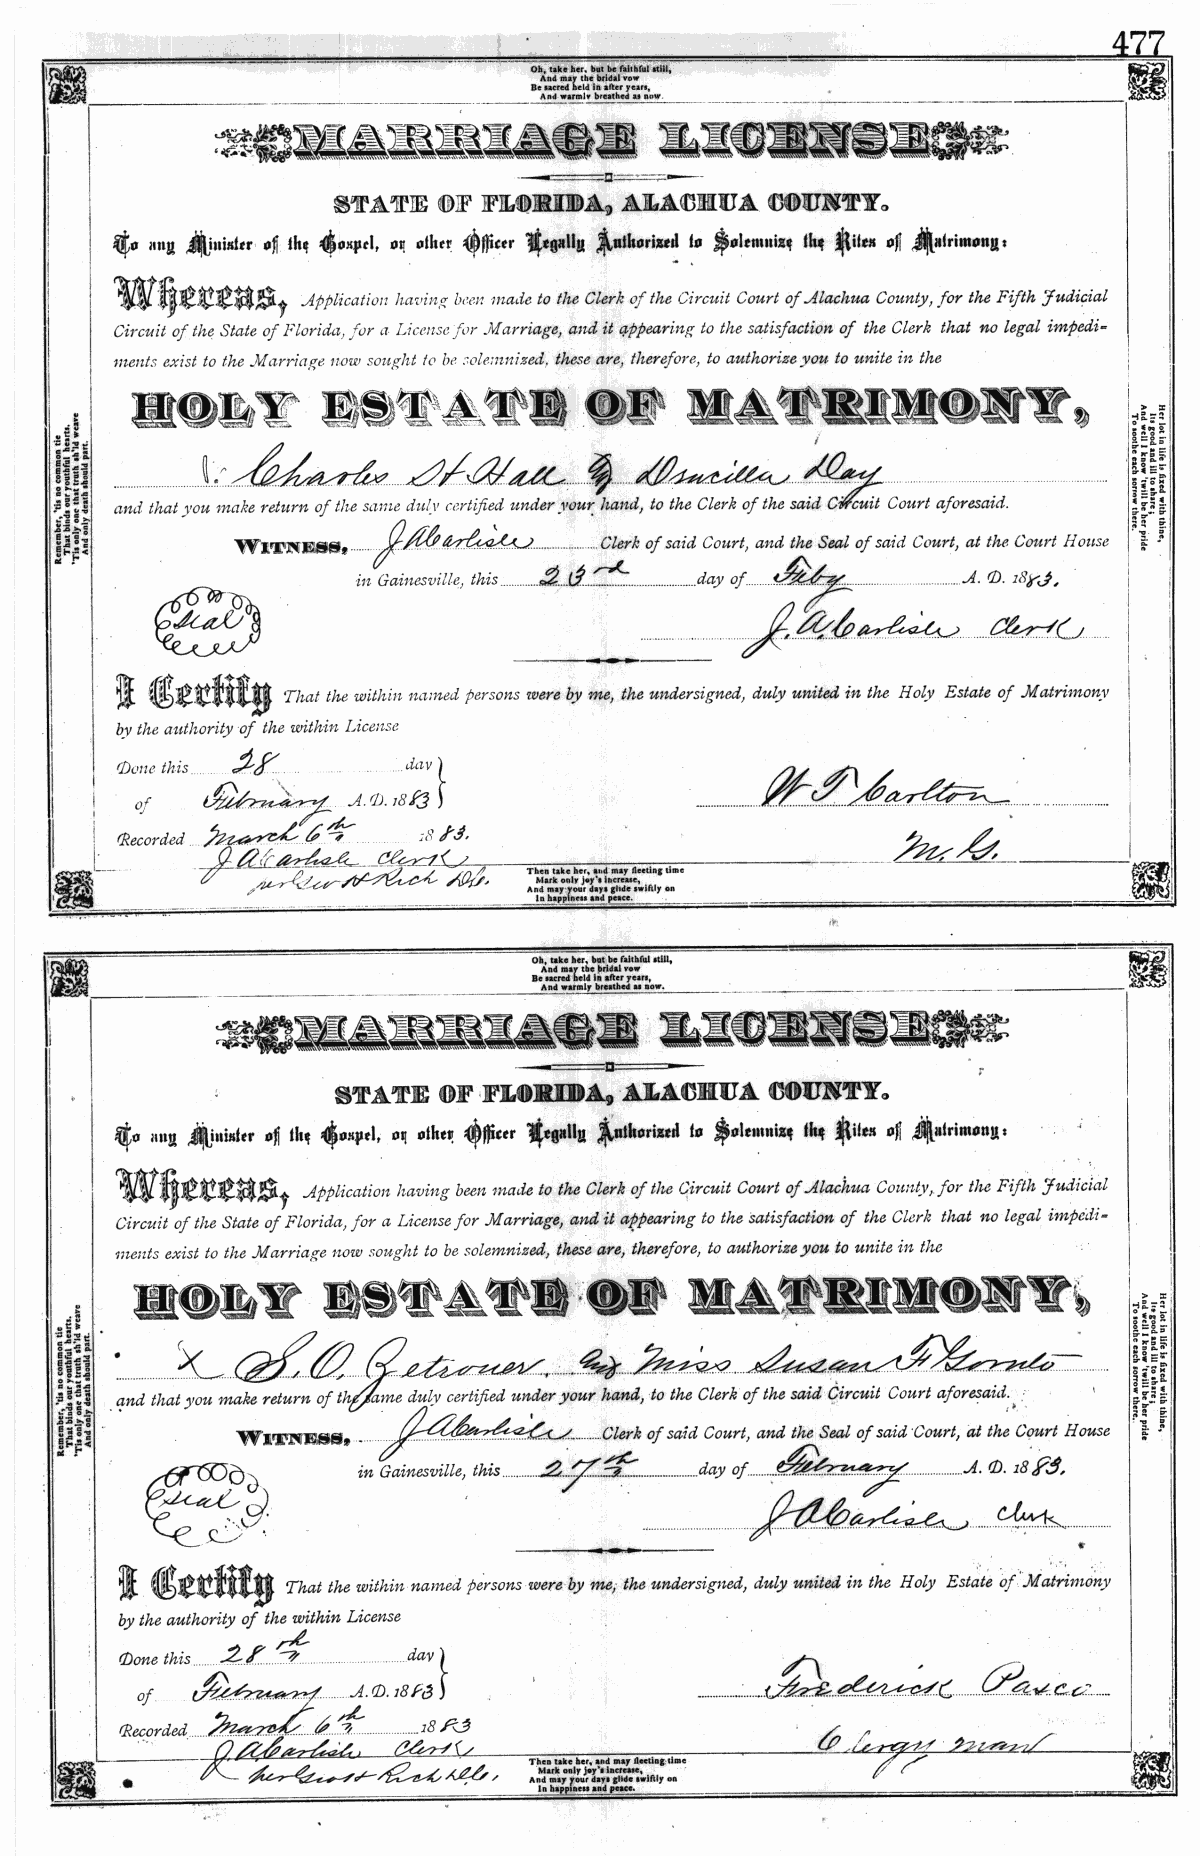 477
Oh, take her, but be faithful still,
And may the bridal vow
Be sacred held in after years,
And warmly breathed as now.
MARRIAGE LICENSE
STATE OF FLORIDA, ALACHUA COUNTY.
To any Minister of the Gospel, or other Officer Legally Authorized to Solemnize the Rites of Matrimony:
Whereas, Application having been made to the Clerk of the Circuit Court of Alachua County, for the Fifth Judicial
Circuit of the State of Florida, for a License for Marriage, and it appearing to the satisfaction of the Clerk that no legal impedi-
ments exist to the Marriage now sought to be solemnized, these are, therefore, to authorize you to unite in the
HOLY ESTATE OF MATRIMONY,
Charles H Hall and Drucilla Day
and that you make return of the same duly certified under your hand, to the Clerk of the said Circuit Court aforesaid.
WITNESS, J A Carlisle Clerk of said Court, and the Seal of said Court, at the Court House
in Gainesville, this 23rd day of Feby A. D. 1883.
Seal
J. A. Carlisle Clerk
I Certify That the within named persons were by me, the undersigned, duly united in the Holy Estate of Matrimony
by the authority of the within License
Done this 28 day
of February A.D. 1883
W T Carlton
Recorded March 6th 1883.
M. G.
J A Carlisle Clerk
per Geo H Rich D.C.
Then take her, and may fleeting time
Mark only joy's increase,
And may your days glide swiftly on
In happiness and peace.
Remember, 'tis no common tie
That binds our youthful hearts,
'Tis only one that truth sh'ld weave
And only death should part.
Her lot in life is fixed with thine,
Its good and ill to share;
And well I know 'twill be her pride
To soothe each sorrow there.
Oh, take her, but be faithful still,
And may the bridal vow
Be sacred held in after years,
And warmly breathed as now.
MARRIAGE LICENSE
STATE OF FLORIDA, ALACHUA COUNTY.
To any Minister of the Gospel, or other Officer Legally Authorized to Solemnize the Rites of Matrimony:
Whereas, Application having been made to the Clerk of the Circuit Court of Alachua County, for the Fifth Judicial
Circuit of the State of Florida, for a License for Marriage, and it appearing to the satisfaction of the Clerk that no legal impedi-
ments exist to the Marriage now sought to be solemnized, these are, therefore, to authorize you to unite in the
HOLY ESTATE OF MATRIMONY,
X S. O. Zetrouer. and Miss Susan F Gornto
and that you make return of the same duly certified under your hand, to the Clerk of the said Circuit Court aforesaid.
WITNESS, J A Carlisle Clerk of said Court, and the Seal of said Court, at the Court House
in Gainesville, this 27th day of February A. D. 1883.
Seal
J A Carlisle Clerk
I Certify That the within named persons were by me, the undersigned, duly united in the Holy Estate of Matrimony
by the authority of the within License
Done this 28th day
of February A.D. 1883
Frederick Pasco
Recorded March 6th 1883
Clergy man
J A Carlisle Clerk
per Geo H Rich D.C.
Then take her, and may fleeting time
Mark only joy's increase,
And may your days glide swiftly on
In happiness and peace.
Remember, 'tis no common tie
That binds our youthful hearts,
'Tis only one that truth sh'ld weave
And only death should part.
Her lot in life is fixed with thine,
Its good and ill to share;
And well I know 'twill be her pride
To soothe each sorrow there.